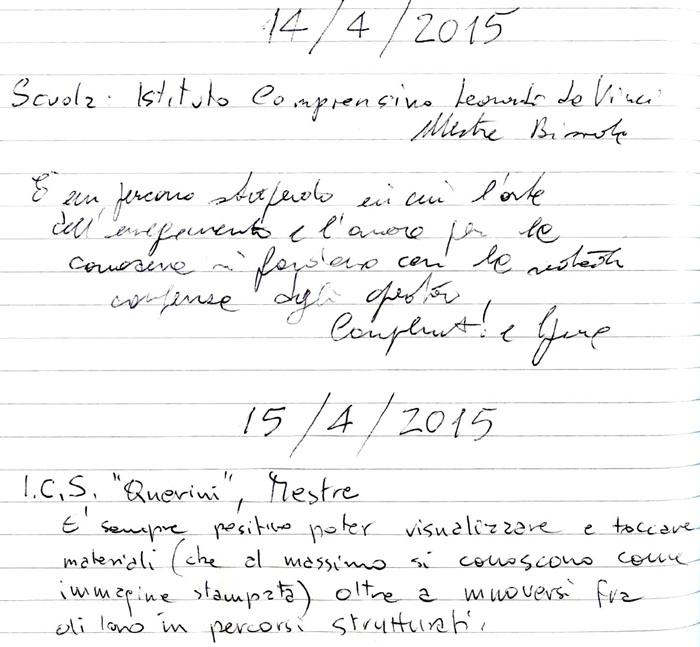 14/4/2015
Scuola: Istituto Comprensivo Leonardo da Vinci
Mestre
È un percorso stupendo in cui l'arte
dell'insegnamento e l'amore per la
conoscenza si fondono con la
competenza degli operatori
Complimenti! e
15/4/2015
I.C.S. "Querini", Mestre
E' sempre positivo poter visualizzare e toccare
materiali (che al massimo si conoscono come
immagine stampata) oltre a muoversi fra
di loro in percorsi strutturati.